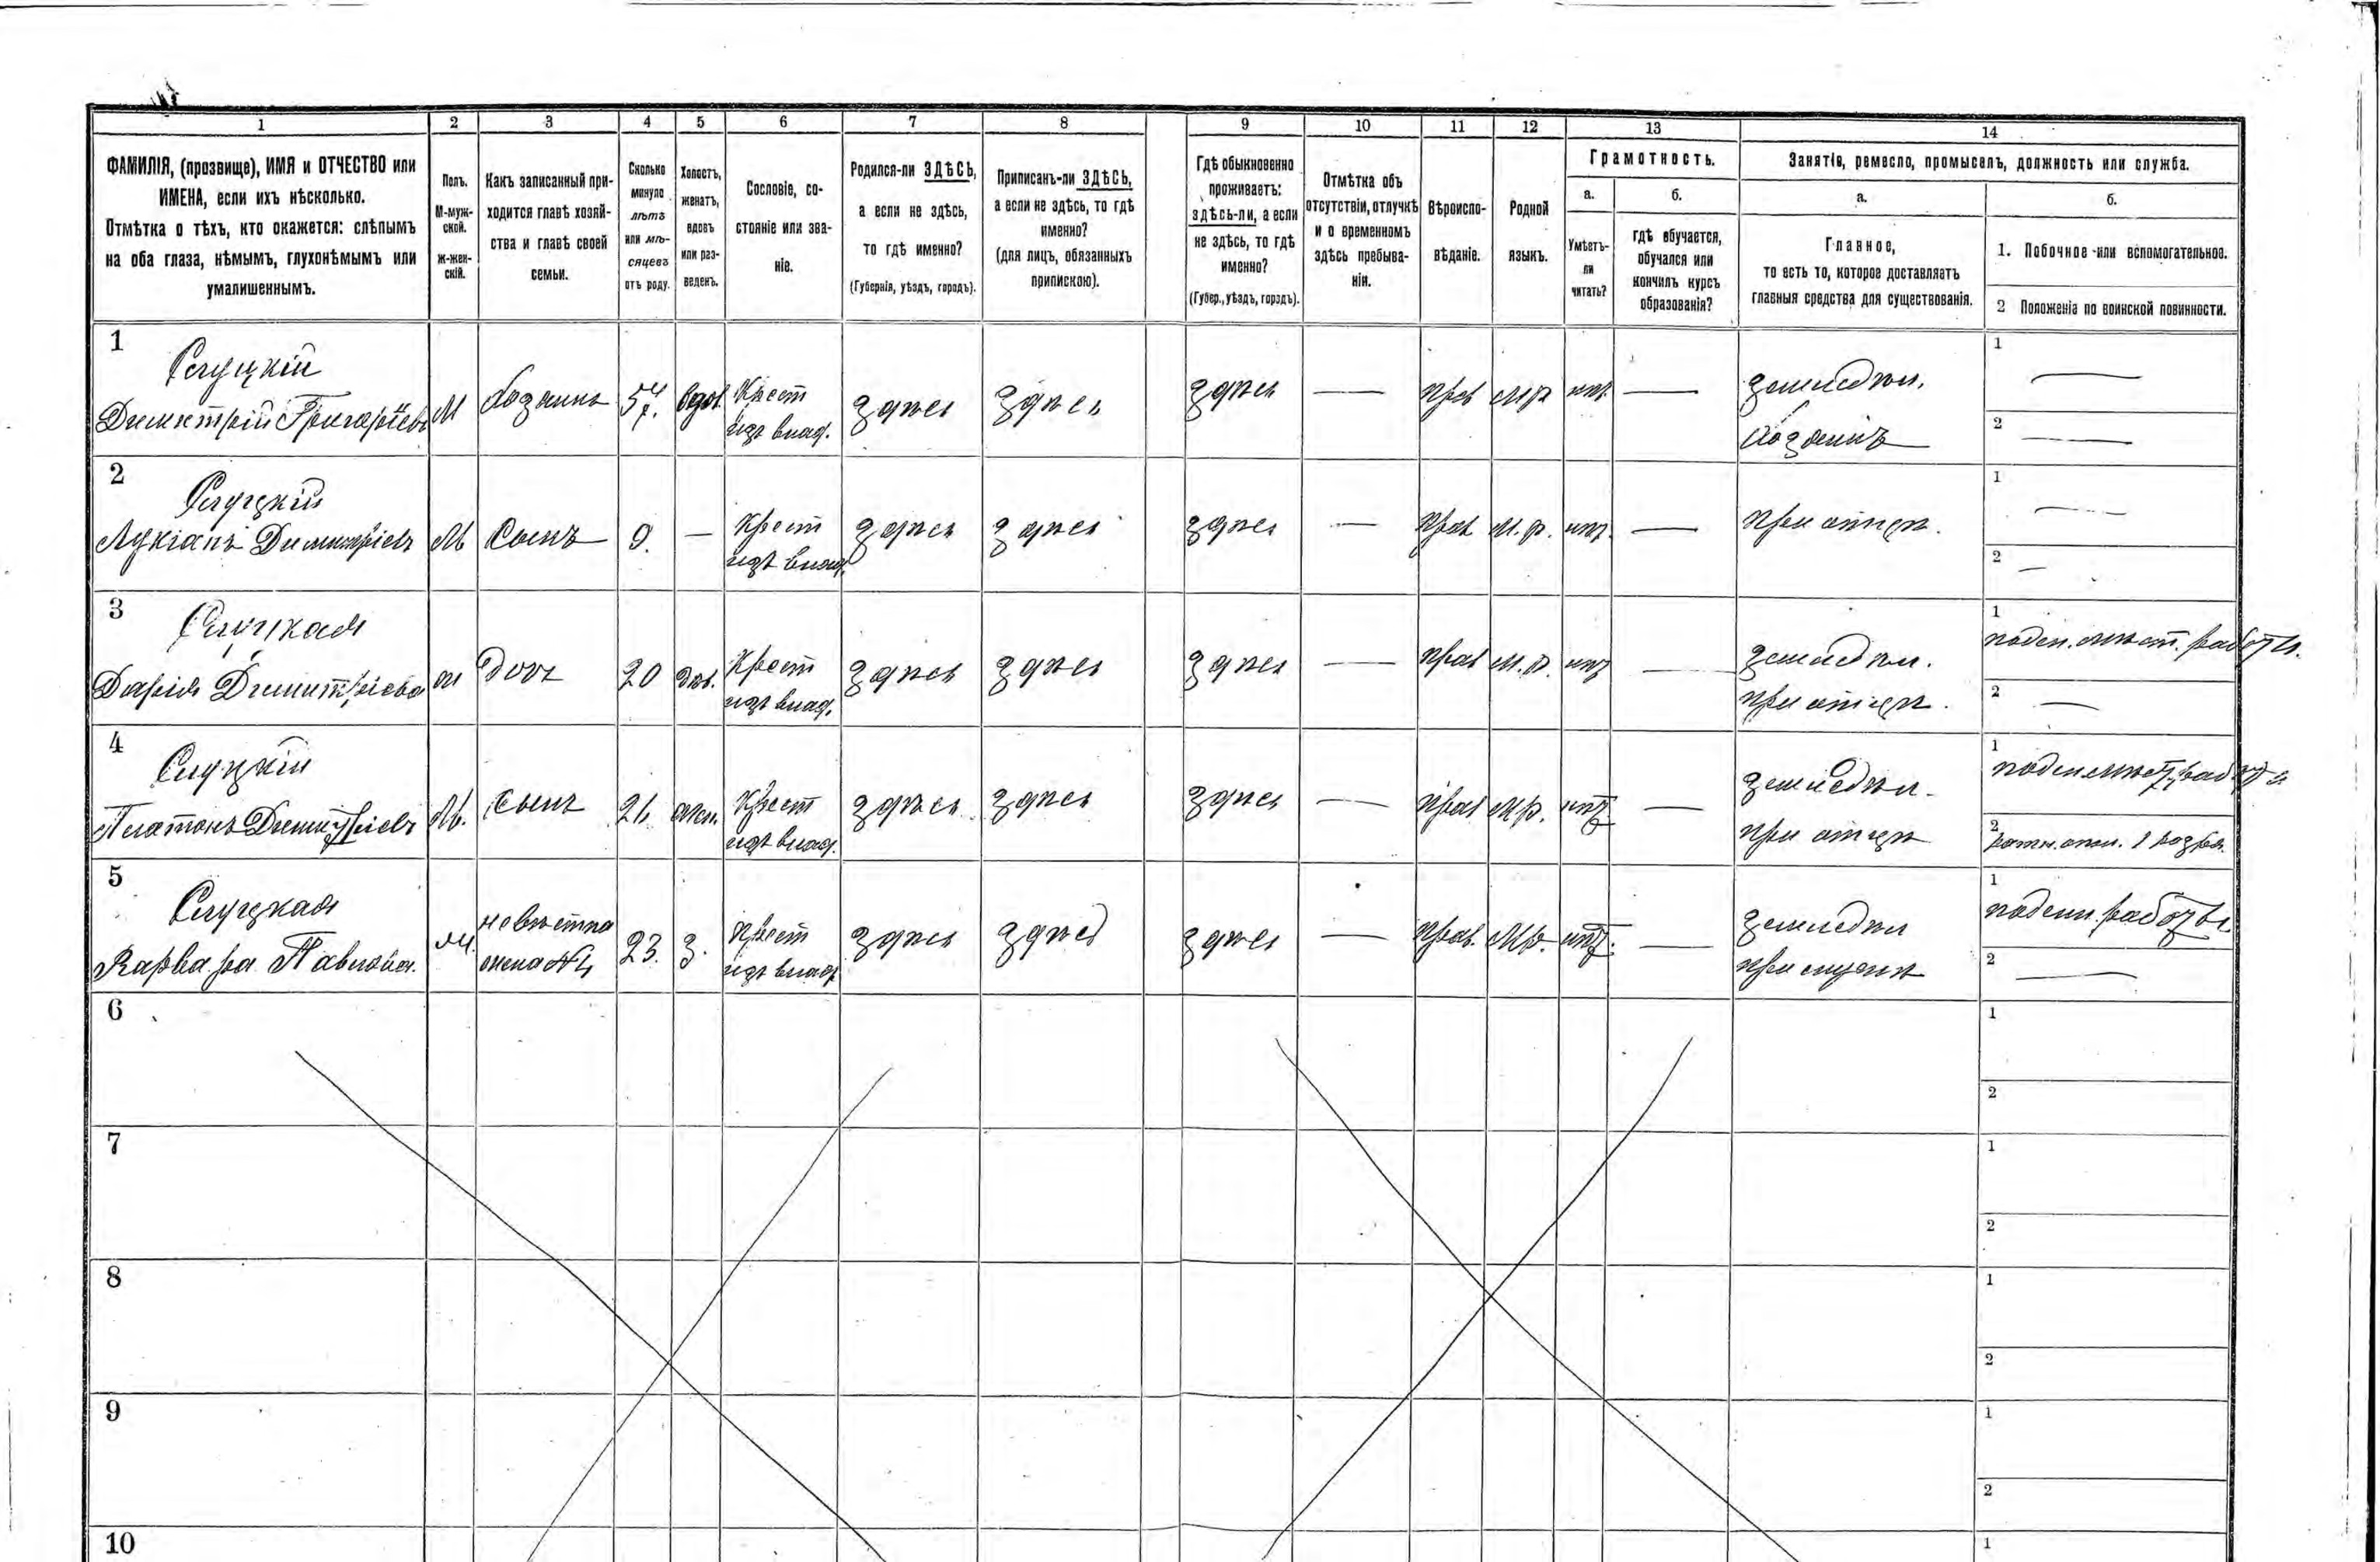 1 2 3 4 5 6 7 8 9 10 11 12 13 14
ФАМИЛІЯ, (прозвище), ИМЯ и ОТЧЕСТВО или
ИМЕНА, если ихъ нѣсколько.
Отмѣтка о тѣхъ, кто окажется: слѣпымъ
на оба глаза, нѣмымъ, глухонѣмымъ или
умалишеннымъ.
Полъ.
М-муж-
ской.
Ж-жен-
скій.
Какъ записанный при-
ходится главѣ хозяй-
ства и главѣ своей
семьи.
Сколько
минуло
лѣтъ
или мѣ-
сяцевъ
отъ роду.
Холостъ,
женатъ,
вдовъ
или раз-
веденъ.
Сословіе, со-
стояніе или зва-
ніе.
Родился-ли ЗДѢСЬ,
а если не здѣсь,
то гдѣ именно?
(Губернія, уѣздъ, городъ).
Приписанъ-ли ЗДѢСЬ,
а если не здѣсь, то гдѣ
именно?
(для лицъ, обязанныхъ
припискою).
Гдѣ обыкновенно
проживаетъ:
здѣсь-ли, а если
не здѣсь, то гдѣ
именно?
(Губер., уѣздъ, городъ).
Отмѣтка объ
отсутствіи, отлучкѣ
и о временномъ
здѣсь пребыва-
ніи.
Вѣроиспо-
вѣданіе.
Родной
языкъ.
Грамотность.
а.
Умѣетъ-
ли
читать?
б.
гдѣ обучается,
обучался или
кончилъ курсъ
образованія?
Занятіе, ремесло, промыселъ, должность или служба.
а.
Главное,
то есть то, которое доставляетъ
главныя средства для существованія.
б.
1. Побочное или вспомогательное.
2 Положеніе по воинской повинности.
1
Слуцкій
Димитрій Григоріевъ
М
Хозяинъ
57.
вдов.
Крест
изъ влад.
здѣсь
здѣсь
здѣсь
—
прав
м.р
нѣт.
—
земледѣл.
Хозяинъ
1 —
2 —
2
Слуцкій
Лукіанъ Димитріевъ
М
Сынъ
9.
—
Крест
изъ влад.
здѣсь
здѣсь
здѣсь
—
прав
м.р.
нѣт.
—
при отцѣ.
1 —
2 —
3
Слуцкая
Дарія Димитріева
ж
Дочь
20
дѣв.
Крест
изъ влад.
здѣсь
здѣсь
здѣсь
—
прав
м.р.
нѣт
—
земледѣл.
при отцѣ.
1 поден. мѣст. работы.
2 —
4
Слуцкій
Платонъ Димитріевъ
М.
Сынъ
жен.
Крест
изъ влад.
здѣсь
здѣсь
здѣсь
—
прав
м.р.
нѣт
—
земледѣл.
при отцѣ
1
2 ратн. опол. 1 разряд.
5
Слуцкая
Варвара Павлова.
ж.
невѣстка
жена №4
23.
з.
Крест
изъ влад.
здѣсь
здѣсь
здѣсь
—
прав.
м.р.
нѣт.
—
земледѣл
при мужѣ
1 поден. работы.
2 —
6
1
2
7
1
2
8
1
2
9
1
2
10
1